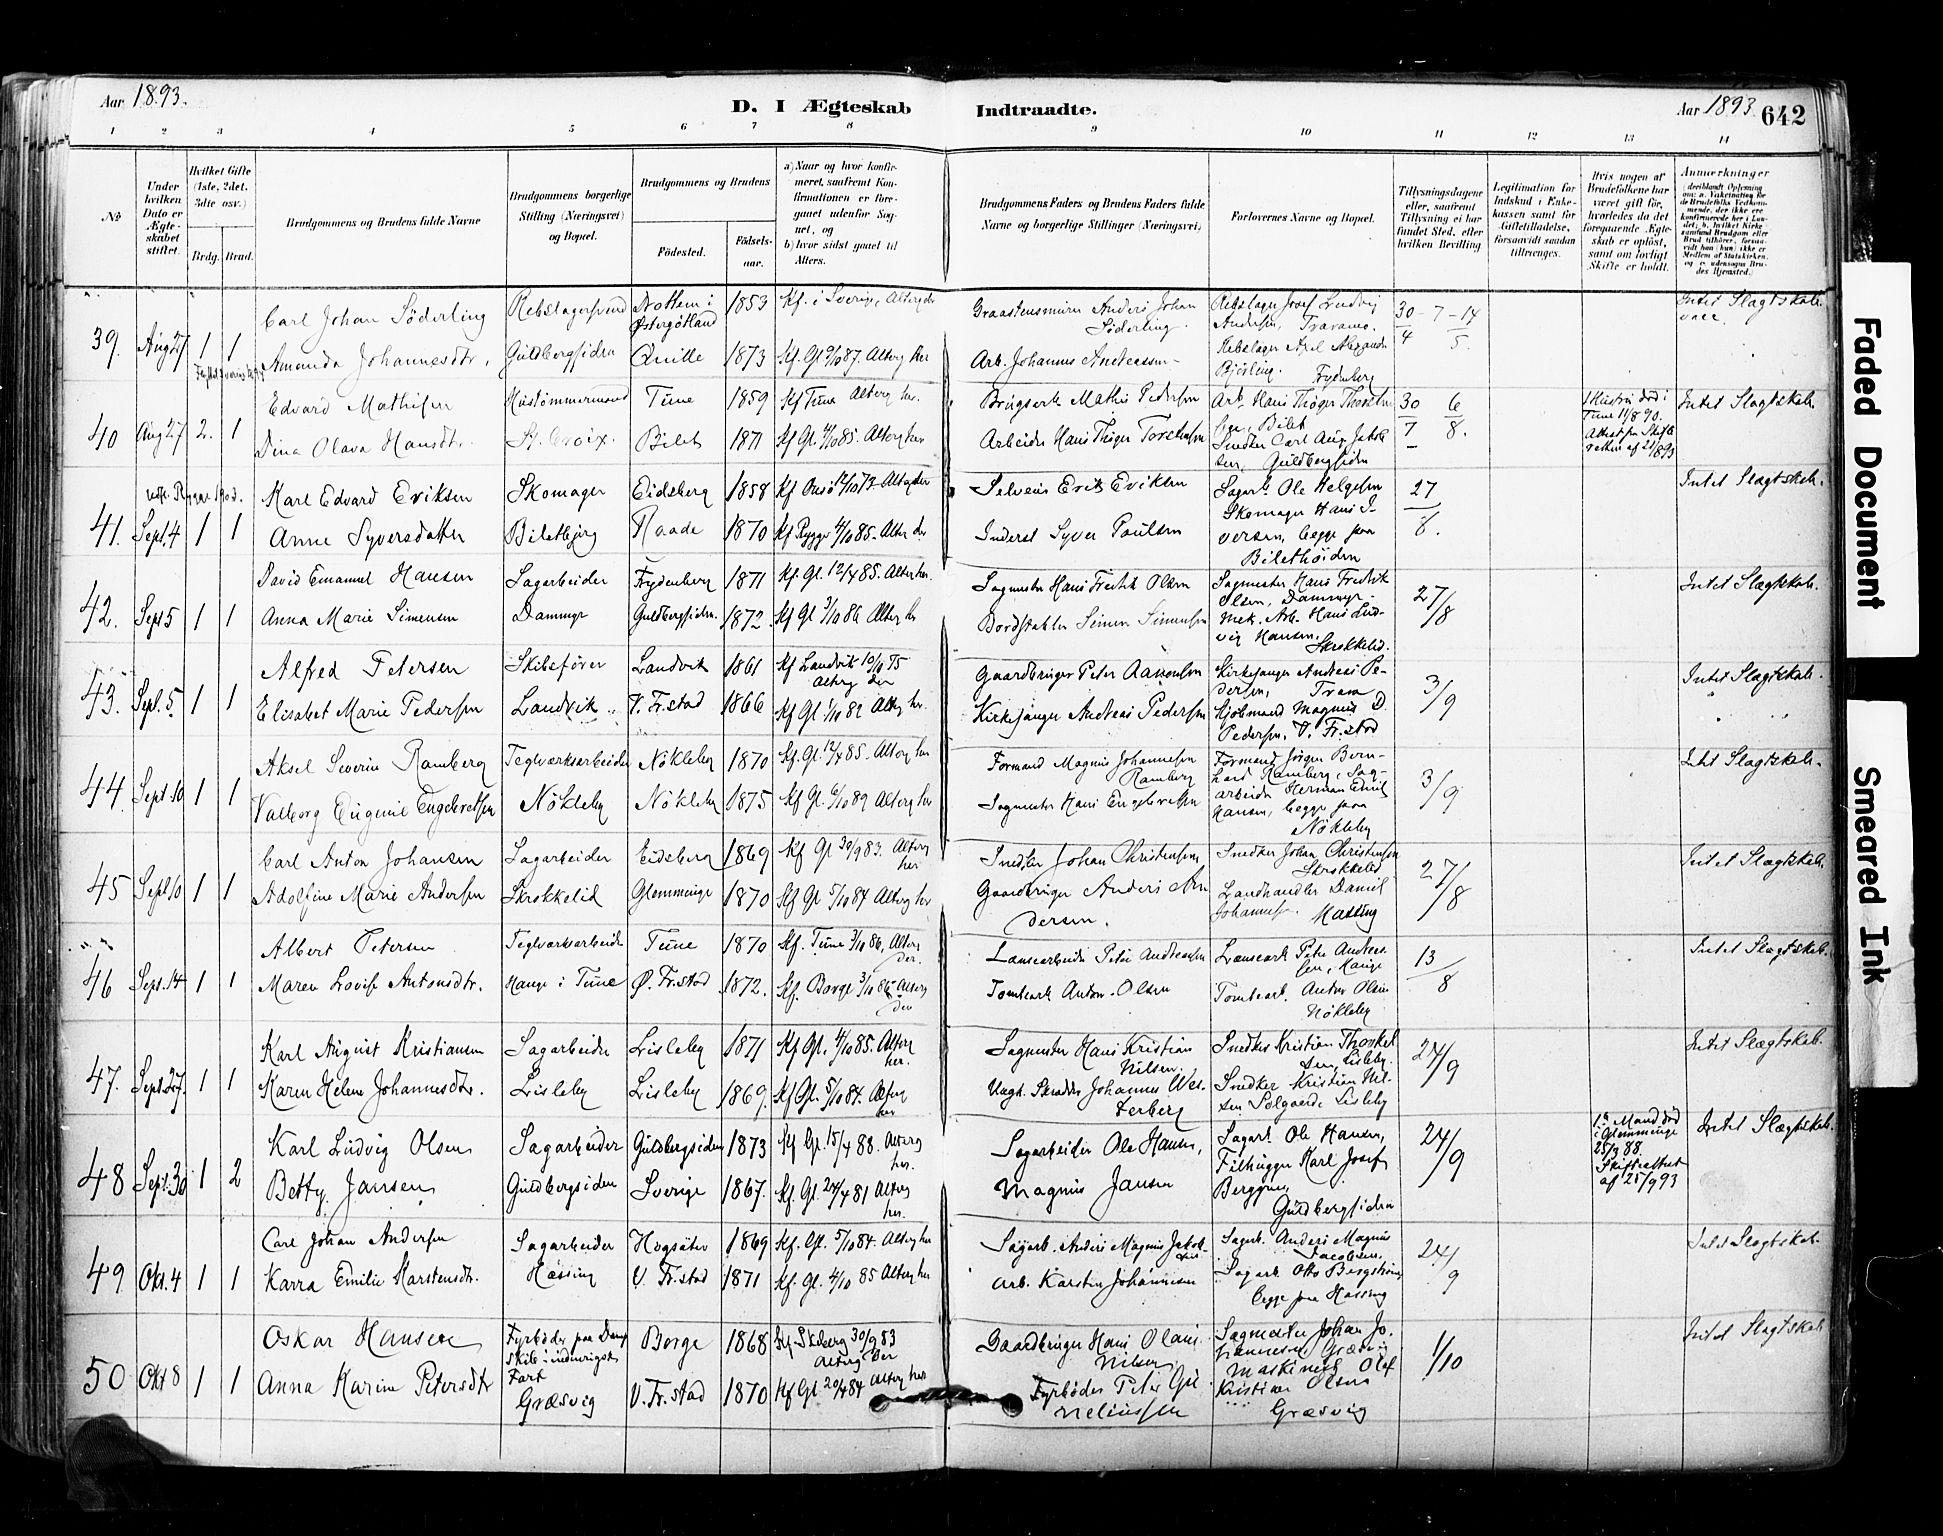 Aar 1893.
D. I Ægteskab Indtraadte.
Aar 1893 642
1 2 3 4 5 6 7 8 9 10 11 12 13 14
No
Under hvilken Dato er Ægteskabet stiftet.
Hvilket Gifte (1ste, 2det, 3dte osv.)
Brdg. Brud.
Brudgommens og Brudens fulde Navne
Brudgommens borgerlige Stilling (Næringsvei) og Bopæl.
Brudgommens og Brudens
Fødested.
Fødselsaar.
a) Naar og hvor konfirmeret, saafremt Konfirmationen er foregaaet udenfor Sognet, og
b) hvor sidst gaaet til Alters.
Brudgommens Faders og Brudens Faders fulde Navne og borgerlige Stillinger (Næringsvei)
Forlovernes Navne og Bopæl.
Tillysningsdagene eller, saafremt Tillysning ei har fundet Sted, efter hvilken Bevilling.
Legitimation for Indskud i Enkekassen samt for Giftetilladelse, forsaavidt saadan tiltrænges.
Hvis nogen af Brudefolkene har været gift før, hvorledes da det foregaaende Ægteskab er opløst, samt om lovligt Skifte er holdt.
Anmærkninger
39. Aug 27 1 1
Carl Johan Söderling Rebslagersvend Drothem i Østergötland 1853 Kf. i Sverige, Alterg der Graastensmurer Anders Johan Söderling. Rebslager Josef Ludvig Andersen, Traramo. 30 - 7 - 14 Intet Slægtskab.
Amanda Johannesdtr. Guldbergsiden Qville 1873 Kf. Gl 9/10 87. Alterg her Arb. Johannes Andreassen Rebslager Axel Alexander 4 5.
40 Aug 27 2. 1
Edvard Mathisen Hustømmermand Tune 1859 Kf Tune Alterg her. Brugserb Mathis Pedersen Arb. Hans Thøger 30 6 Hustru død i Tune 11/8 90. Intet Slægtskab.
Dina Olava Hansdtr. St. Croix. Bilet 1871 Kf Gl 4/10 85. Alterg her Arbeider Hans Thøger Snedker Carl Aug. Guldbergsiden 7 8.
41. Sept. 4 1 1
Karl Edvard Eriksen Skomager Eidsberg 1858 Selveier Erik Eriksen Sagarb. Ole Helgesen 27 Intet Slægtskab.
Anne Syversdatter Biletbjerg Raade 1870 Kf Rygge 4/10 85. Alterg der Inderst Syver Paulsen Skomager Hans Iversen, begge paa Bilethöiden 8.
42. Sept 5 1 1
David Emanuel Hansen Sagarbeider Frydenberg 1871 Kf. Gl. 12/4 85. Alterg her. Sagmester Hans Fredrik Olsen Sagmester Hans Fredrik Olsen, Dammyr. 27/8 Intet Slægtskab.
Anna Marie Simensen Dammyr Guldbergsiden. 1872. Kf Gl 3/10 86 Alterg her Bordstabler Simen Simensen Mek. Arb. Hans Ludvig Hansen, Skrokkelid.
43. Sept. 5. 1 1
Alfred Petersen Skibsfører Landvik 1861 Kf Landvik 10/10 75 Alterg der Gaardbruger Peter Kirkesanger Andreas Pedersen, Trara 3/9 Intet Slægtskab.
Elisabet Marie Pedersen Landvik V. Fr.stad 1866 Kf Gl 1/10 82 Alterg her. Kirkesanger Andreas Pedersen Kjøbmand Magnus D. Pedersen, V. Fr.stad
44. Sept 10 1 1
Aksel Severin Ramberg Teglværksarbeider Nökleby 1870 Kf. Gl. 12/4 85. Alterg her Formand Magnus Johannesen Ramberg Formand Jörgen Bernhard Ramberg, 3/9 Intet Slægtskab.
Valborg Eugenie Engebretsen Nökleby Nökleby 1875 Kf Gl. 6/10 89 Alterg her Sagmester Hans Engebretsen Sagarbeider Herman Emil Hansen, begge paa Nökleby
45 Sept 10 1 1
Carl Anton Johansen Sagarbeider Eidsberg 1869 Kf Gl 30/9 83. Alterg her Snedker Johan Christensen Snedker Johan Christensen Skrokkelid 27/8 Intet Slægtskab.
Adolfine Marie Andersen Skrokkelid Glemminge 1870 Kf Gl 5/10 84 Alterg her Gaardbruger Anders Andersen. Landhandler Daniel Johannesen.
46 Sept. 14 1 1
Albert Petersen Teglværksarbeider Tune 1870 Kf. Tune 3/10 86, Alterg der. Lænsearbeider Peter Andreassen Lænsearb Peter Andreassen, Hauge 13 Intet Slægtskab.
Maren Lovise Antonsdtr. Hauge i Tune Ø. Fr.stad 1872. Kf. Borge 3/10 86 Alterg der Tomtearb Anton Olsen Tomtearb. Anton Olsen Nökleby 8
47. Sept. 27. 1 1
Karl August Kristiansen Sagarbeider Lisleby 1871 Kf Gl. 4/10 85. Alterg her. Sagmester Hans Kristian Nilsen. Snedker Kristian Thorkelsen, Lisleby. 24/9 Intet Slægtskab.
Karen Helene Johannesdtr. Lisleby Lisleby 1869. Kf Gl. 5/10 84. Alterg her Skrædder Johannes Westerberg Snedker Kristian Nilsen Solgaard Lisleby
48 Sept. 30 1 2
Karl Ludvig Olsen Sagarbeider Guldbergsiden 1873 Kf Gl. 15/4 88. Alterg her. Sagarbeider Ole Hansen, Sagarb. Ole Hansen, 24/9 1ste Mand död i Glemminge 25/3 88. Skifteattest af 25/9 93 Intet Slægtskab.
Betty Jansen Guldbergsiden Sverige 1867. Kf. Gl. 24/4 81 Alterg her. Magnus Jansen Filhugger Karl Josef Berggren, Guldbergsiden
49 Okt. 4 1 1
Carl Johan Andersen Sagarbeider 1869 Kf. Gl. 5/10 84. Alterg her Sagarb. Anders Magnus Jakobsen Sagarb. Anders Magnus Jacobsen, 24/9 Intet Slægtskab.
Karra Emilie Karstensdtr. Hassing V. Fr.stad 1871 Kf. Gl. 4/10 85 Alterg her Arb. Karsten Johannesen Sagarb Otto Bergström, begge paa Hassing
50 Okt 8 1 1
Oskar Hansen Fyrböder paa Dampskib i indenrigsk Fart Borge 1868 Kf Skeberg 30/9 83 Alterg Der Gaardbruger Hans Olaus Nilsen Sagmester Johan Johannesen Græsvig 1/10 Intet Slægtskab
Anna Karine Petersdtr Græsvig V. Fr.stad 1870 Kf Gl. 20/4 84 Alterg her Fyrböder Peter Gu Neliussen Maskinist Olof Kristian Olsen Græsvig
Faded Document
Smeared Ink